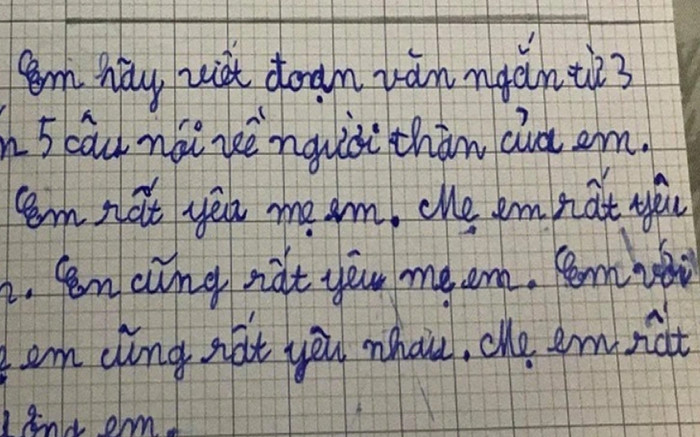 Em hãy viết đoạn văn ngắn từ 3
5 câu nói về người thân của em.
Em rất yêu mẹ em. Mẹ em rất yêu
Em cũng rất yêu mẹ em. Em với
em cũng rất yêu nhau. Mẹ em rất
em.